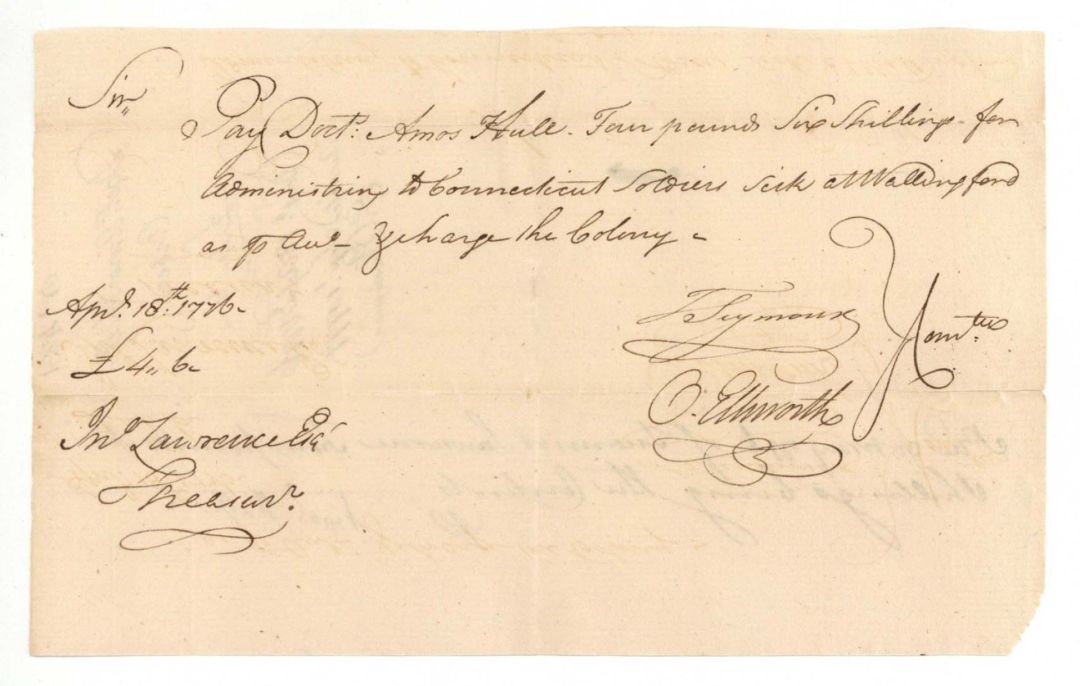 Sir,,
Pay Doctr: Amos Hull - Four pounds Six Shillings - for
Administring to Connecticut Soldiers Sick at Wallingford
as pr Acco - & charge the Colony -
Apl. 18th: 1776 -
£4,, 6 -
T Seymour
Comtee
O. Ellsworth
Jno Lawrence Esqr
Treasurr.